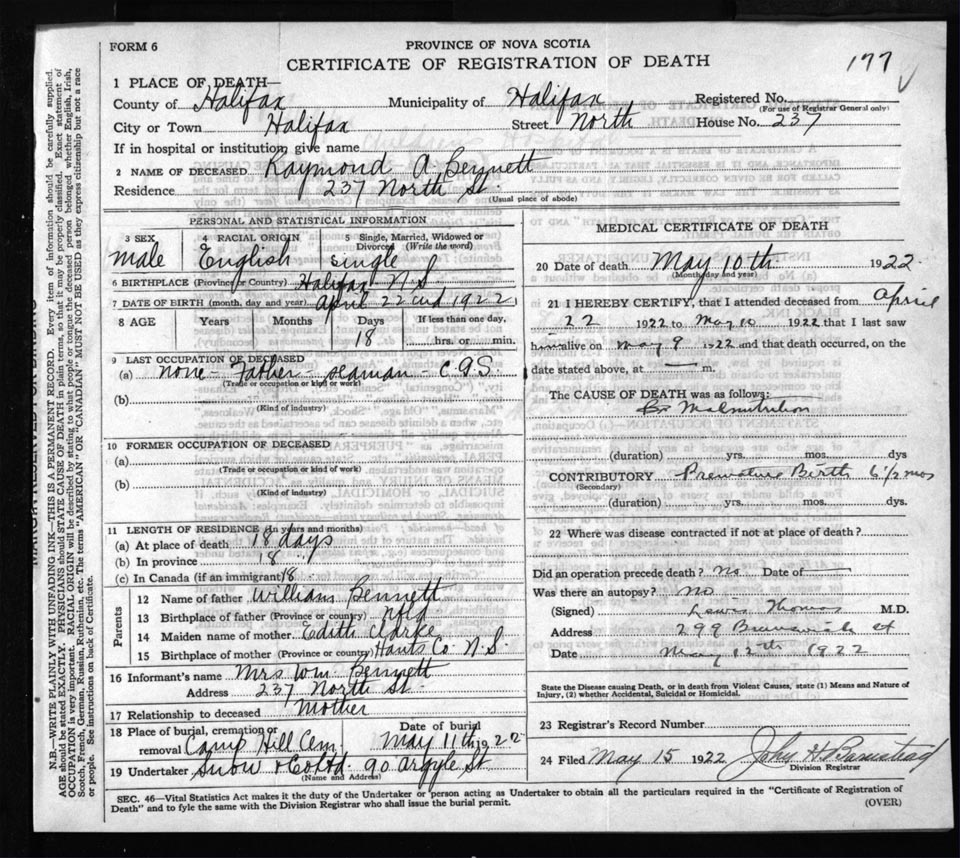 FORM 6
PROVINCE OF NOVA SCOTIA
CERTIFICATE OF REGISTRATION OF DEATH
177
1 PLACE OF DEATH—
County of Halifax Municipality of Halifax Registered No.
(For use of Registrar General only)
City or Town Halifax Street North House No. 237
If in hospital or institution, give name
2 NAME OF DECEASED Raymond A Bennett
Residence 237 North St.
(Usual place of abode)
PERSONAL AND STATISTICAL INFORMATION
3 SEX 4 RACIAL ORIGIN 5 Single, Married, Widowed or Divorced (Write the word)
Male English single
6 BIRTHPLACE (Province or Country) Halifax N.S
7 DATE OF BIRTH (month, day and year) April 22nd 1922
8 AGE Years Months Days If less than one day,
18 hrs. or min.
9 LAST OCCUPATION OF DECEASED
(a) none - Father - seaman - C.G.S.
(Trade or occupation or kind of work)
(b)
(Kind of industry)
10 FORMER OCCUPATION OF DECEASED
(a)
(Trade or occupation or kind of work)
(b)
(Kind of industry)
11 LENGTH OF RESIDENCE (In years and months)
(a) At place of death 18 days
(b) In province 18 "
(c) In Canada (if an immigrant) 18 "
Parents
12 Name of father William Bennett
13 Birthplace of father (Province or country) Nfld
14 Maiden name of mother Edith Clarke
15 Birthplace of mother (Province or country) Hants Co. N.S.
16 Informant's name Mrs Wm Bennett
Address 237 North St.
17 Relationship to deceased Mother
18 Place of burial, cremation or removal Camp Hill Cem. Date of burial May 11th 1922
19 Undertaker Snow & Co Ltd 90 Argyle St
(Name and Address)
MEDICAL CERTIFICATE OF DEATH
20 Date of death May 10th 1922
(Month, day and year)
21 I HEREBY CERTIFY, that I attended deceased from April
22 1922 to May 10 1922 that I last saw
him alive on May 9 1922 and that death occurred, on the
date stated above, at — m.
The CAUSE OF DEATH was as follows:
Malnutrition
(duration) yrs. mos. dys
CONTRIBUTORY Premature Birth 6 1/2 mos
(Secondary)
(duration) yrs. mos. dys.
22 Where was disease contracted if not at place of death?
Did an operation precede death? No Date of —
Was there an autopsy? No
(Signed) Lewis Thomas M.D.
Address 299 Brunswick st
Date May 12th 1922
State the Disease causing Death, or in death from Violent Causes, state (1) Means and Nature of
Injury, (2) whether Accidental, Suicidal or Homicidal.
23 Registrar's Record Number
24 Filed May 15 1922
Division Registrar
SEC. 46—Vital Statistics Act makes it the duty of the Undertaker or person acting as Undertaker to obtain all the particulars required in the "Certificate of Registration of
Death" and to fyle the same with the Division Registrar who shall issue the burial permit.
(OVER)
N.B.—WRITE PLAINLY WITH UNFADING INK—THIS IS A PERMANENT RECORD. Every item of information should be carefully supplied.
AGE should be stated EXACTLY. PHYSICIANS should STATE CAUSE OF DEATH in plain terms, so that it may be properly classified. Exact statement of
OCCUPATION is very important. RACIAL ORIGIN will be described by stating to what people or tongue the deceased person belonged, whether English, Irish,
Scotch, French, German, Russian, Ruthenian, etc. The terms "AMERICAN" OR "CANADIAN" MUST NOT BE USED as they express citizenship but not a race
or people. See instructions on back of Certificate.